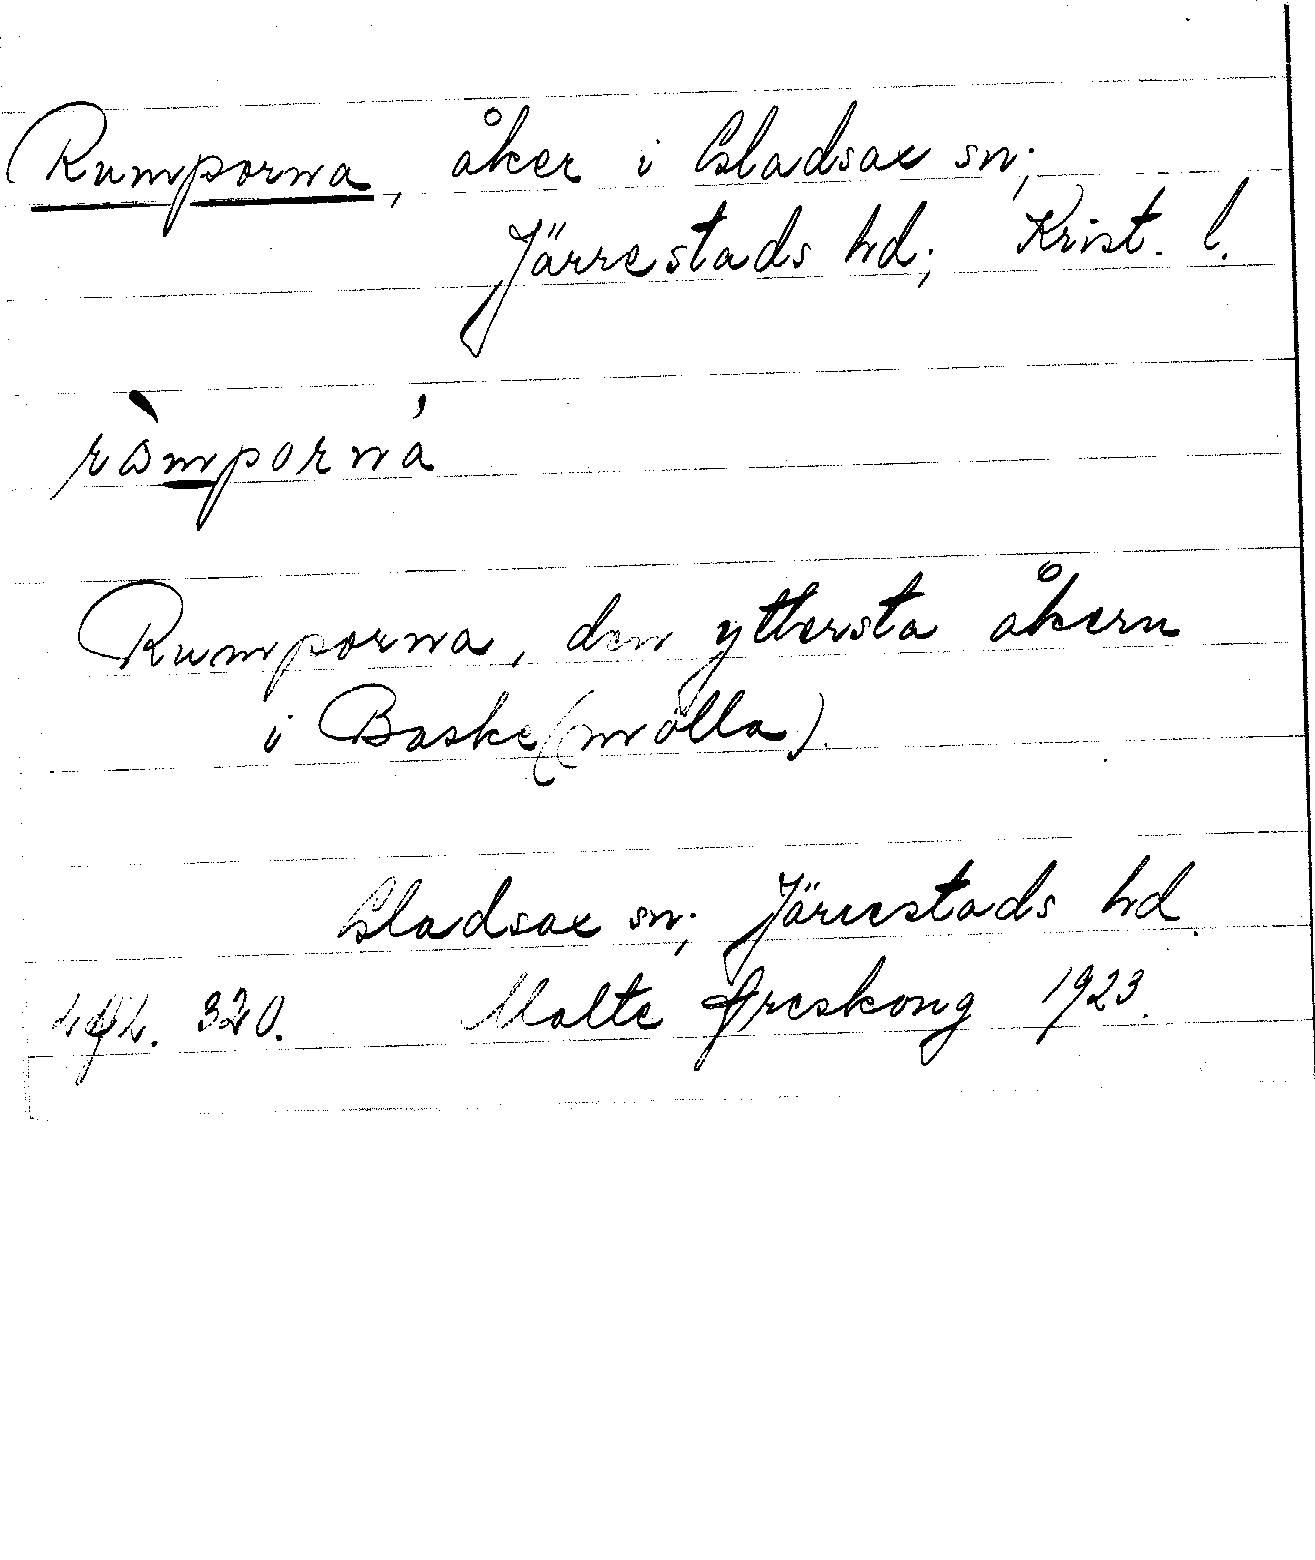 Rumporna, åker i Gladsax sn;
Järrestads hd; Krist. l.
Rumporna, den yttersta åkern
i Baske(mölla).
Gladsax sn; Järrestads hd.
320. Malte Areskoug 1923.